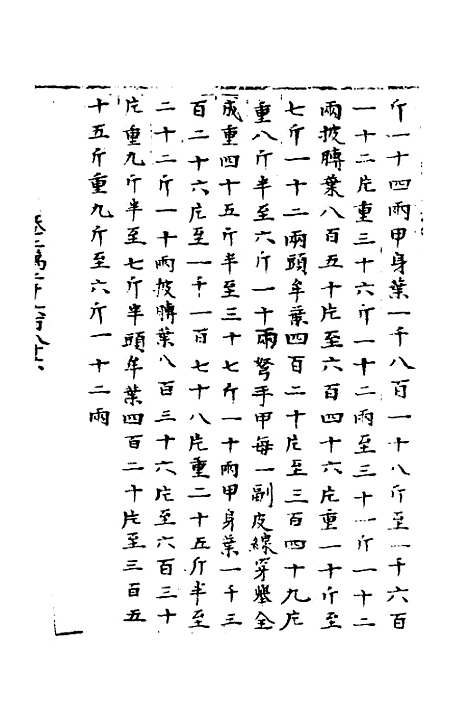 斤一十四兩甲身葉一千八百一十八斤至一千六百
一十二片重三十六斤一十二兩至三十一斤一十二
兩披膊葉八百五十片至六百四十六片重一十斤至
七斤一十二兩頭牟葉四百二十片至三百四十九片
重八斤半至六斤一十兩弩手甲每一副皮線穿舉全
成重四十五斤半至三十七斤一十兩甲身葉一千三
百二十六片至一千一百七十八片重二十五斤半至
二十二斤一十兩披膊葉八百三十六片至六百三十
片重九斤半至七斤半頭牟葉四百二十片至三百五
十五斤重九斤至六斤一十二兩